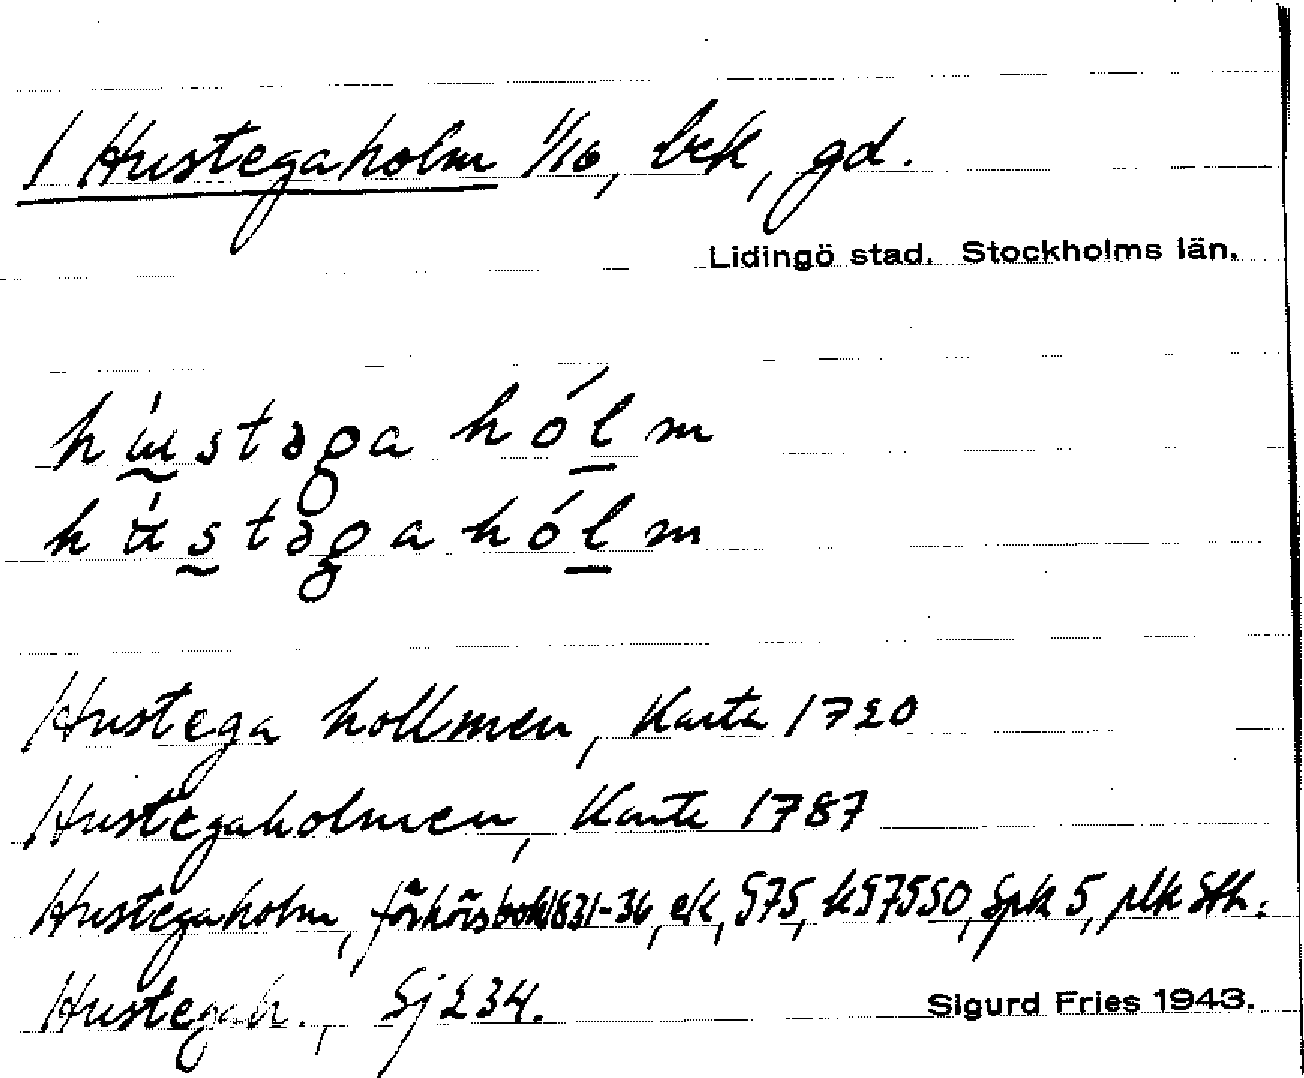 1 Hustegaholm 1/16, bek, gd.
Lidingö stad. Stockholms län.
hústəga hólm
hústəga hólm
Hustega hollmen, Karta 1720
Hustegaholmen, Karta 1787
Hustegaholm, förhörsbok 1831-36, ek, S75, kS7550, Spk 5, plk Sth.
Hustegah., Sj 234.
Sigurd Fries 1943.